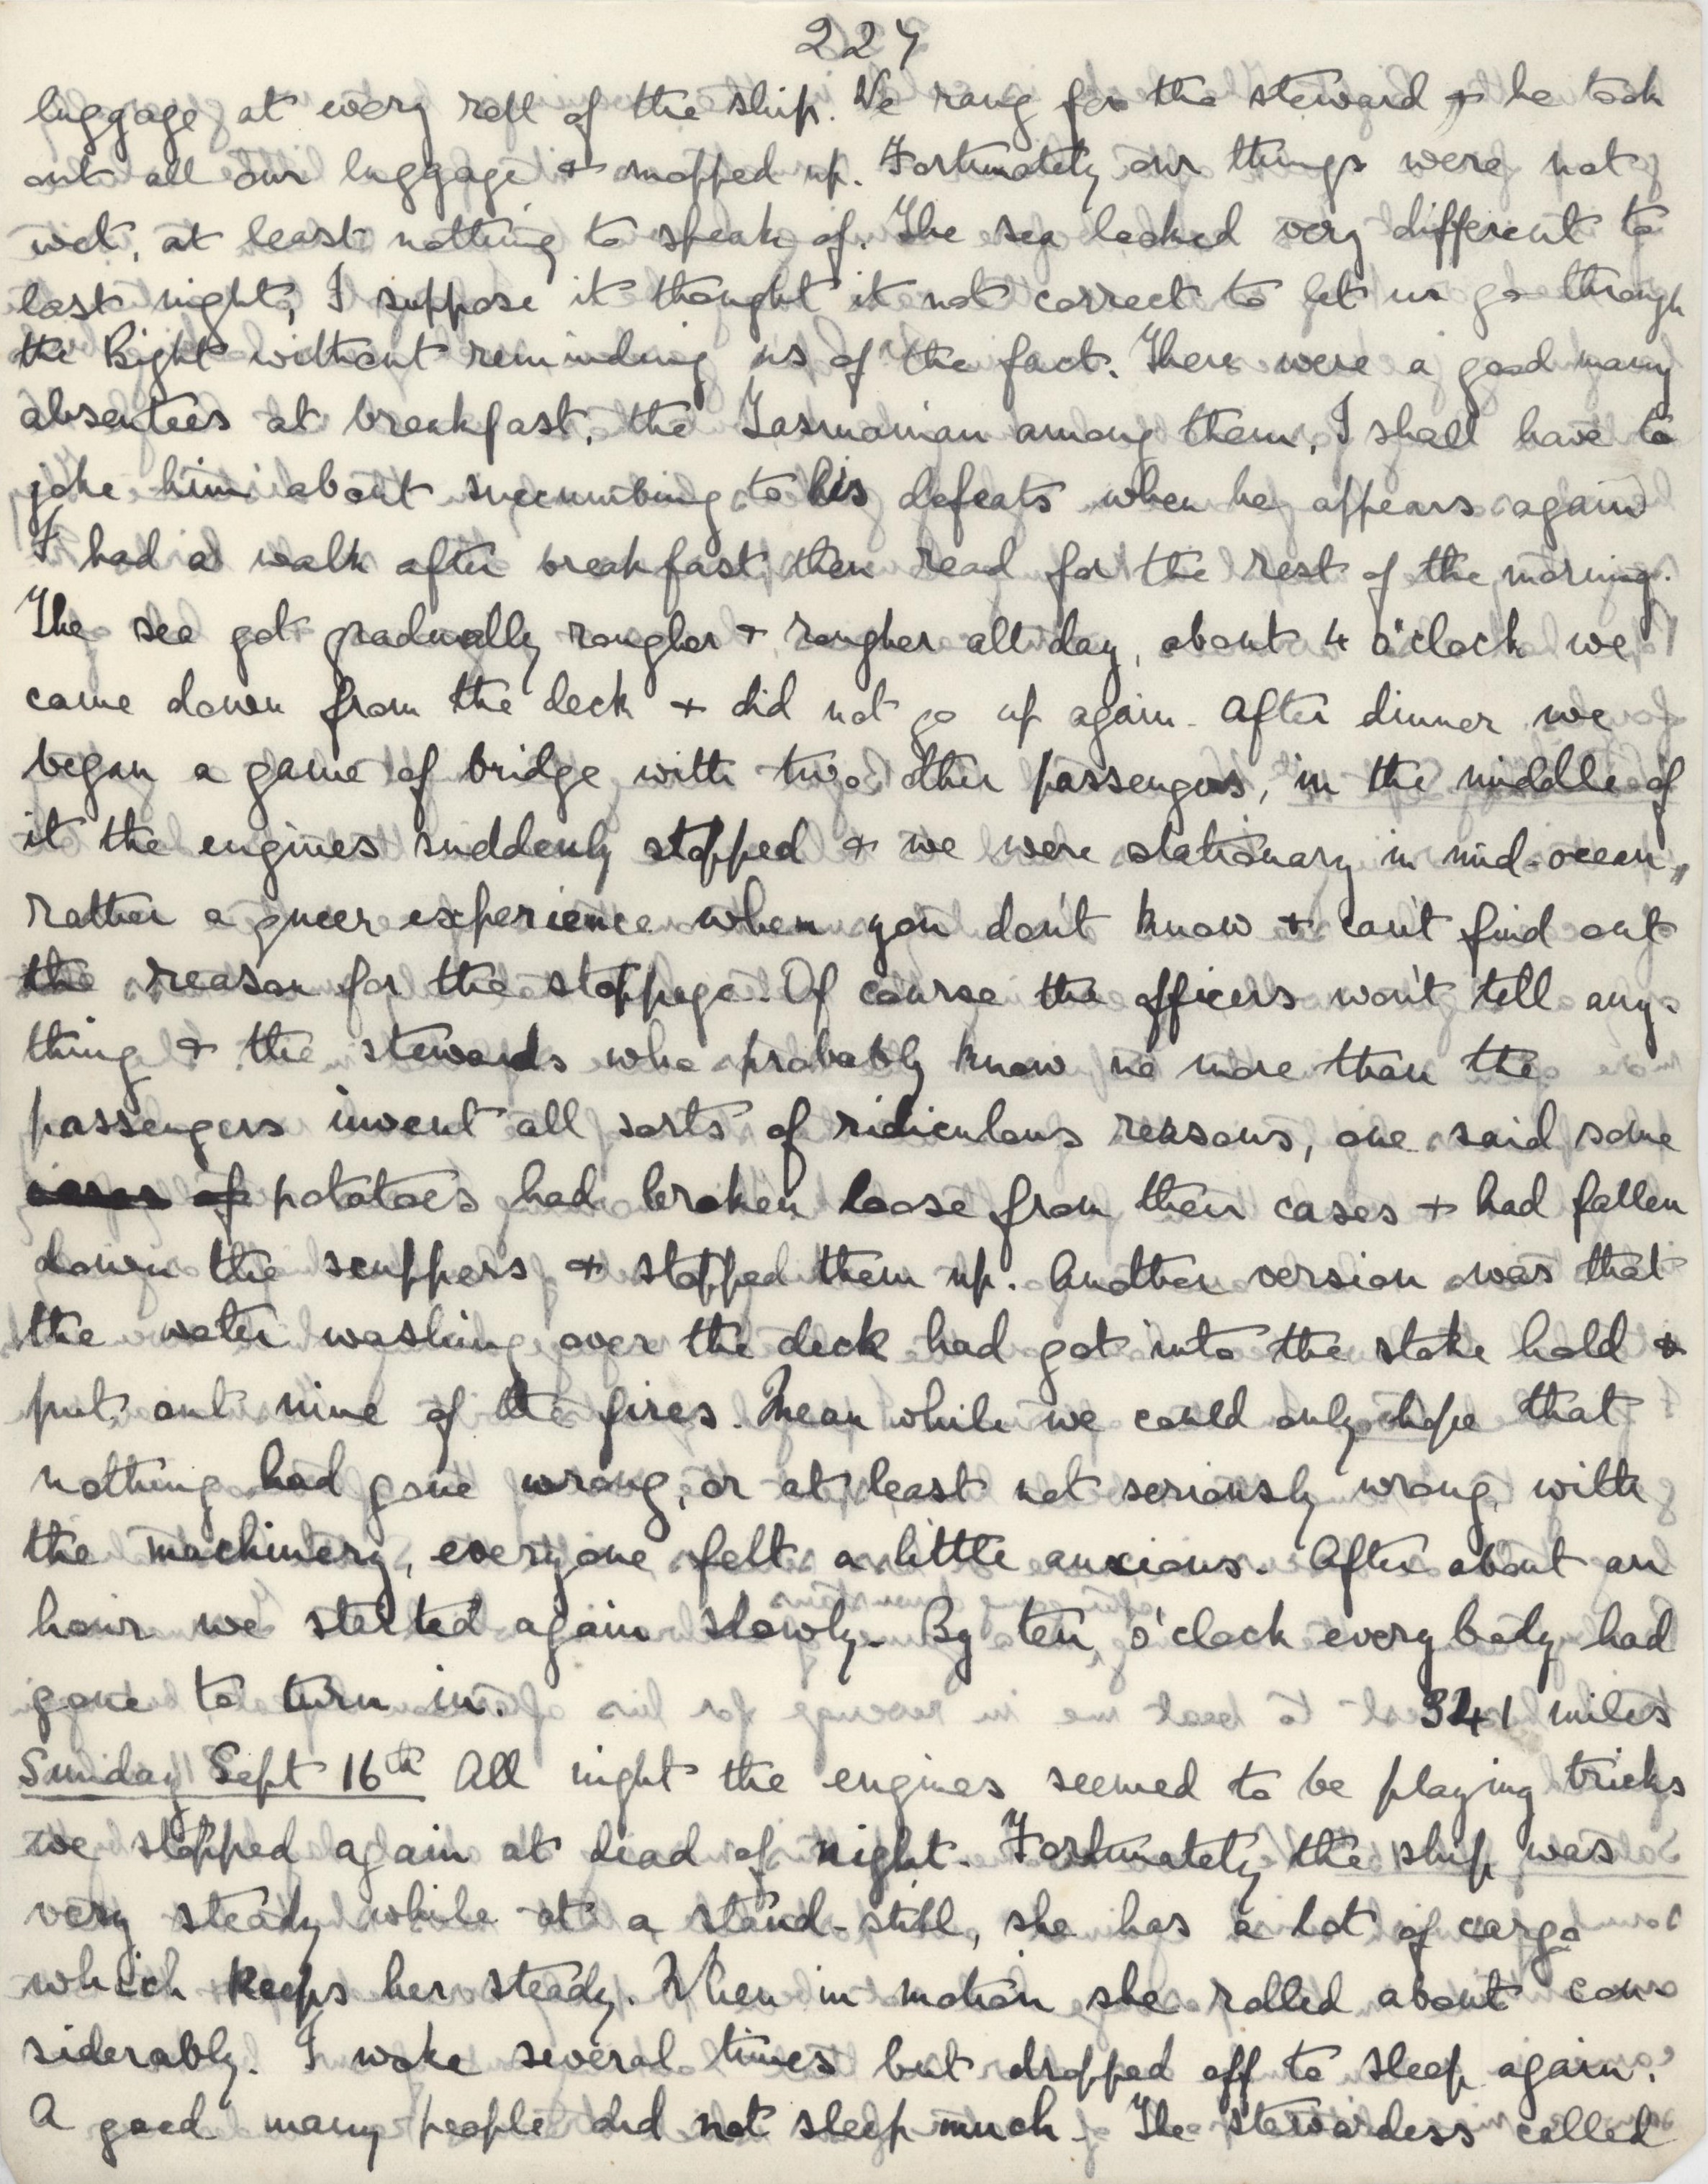 227
luggage at every roll of the ship. We rang for the steward & he took
out all our luggage & mopped up. Fortunately our things were not
wet, at least nothing to speak of. The sea looked very different to
last night, I suppose it thought it not correct to let us go through
the Bight without reminding us of the fact. There were a good many
absentees at breakfast, the Tasmanian among them, I shall have to
joke him about succumbing to his defeats when he appears again
I had a walk after breakfast, then read for the rest of the morning.
The sea got gradually rougher & rougher all day, about 4 o'clock we
came down from the deck & did not go up again. After dinner we
began a game of bridge with two other passengers, in the middle of
it the engines suddenly stopped & we were stationary in mid-ocean,
rather a queer experience when you don't know & can't find out
the reason for the stoppage. Of course the officers won't tell any-
thing & the stewards who probably know no more than the
passengers invent all sorts of ridiculous reasons, one said some
of potatoes had broken loose from their cases & had fallen
down the scuppers & stopped them up. Another version was that
the water washing over the deck had got into the stoke hold &
put out nine of the fires. Mean while we could only hope that
nothing had gone wrong, or at least not seriously wrong, with
the machinery, everyone felt a little anxious. After about an
hour we started again slowly. By ten o'clock everybody had
gone to turn in. 341 miles
Sunday Sept 16th All night the engines seemed to be playing tricks
we stopped again at dead of night. Fortunately the ship was
very steady while at a stand-still, she has a lot of cargo
which keeps her steady. When in motion she rolled about con-
siderably. I woke several times but dropped off to sleep again.
A good many people did not sleep much. The stewardess called